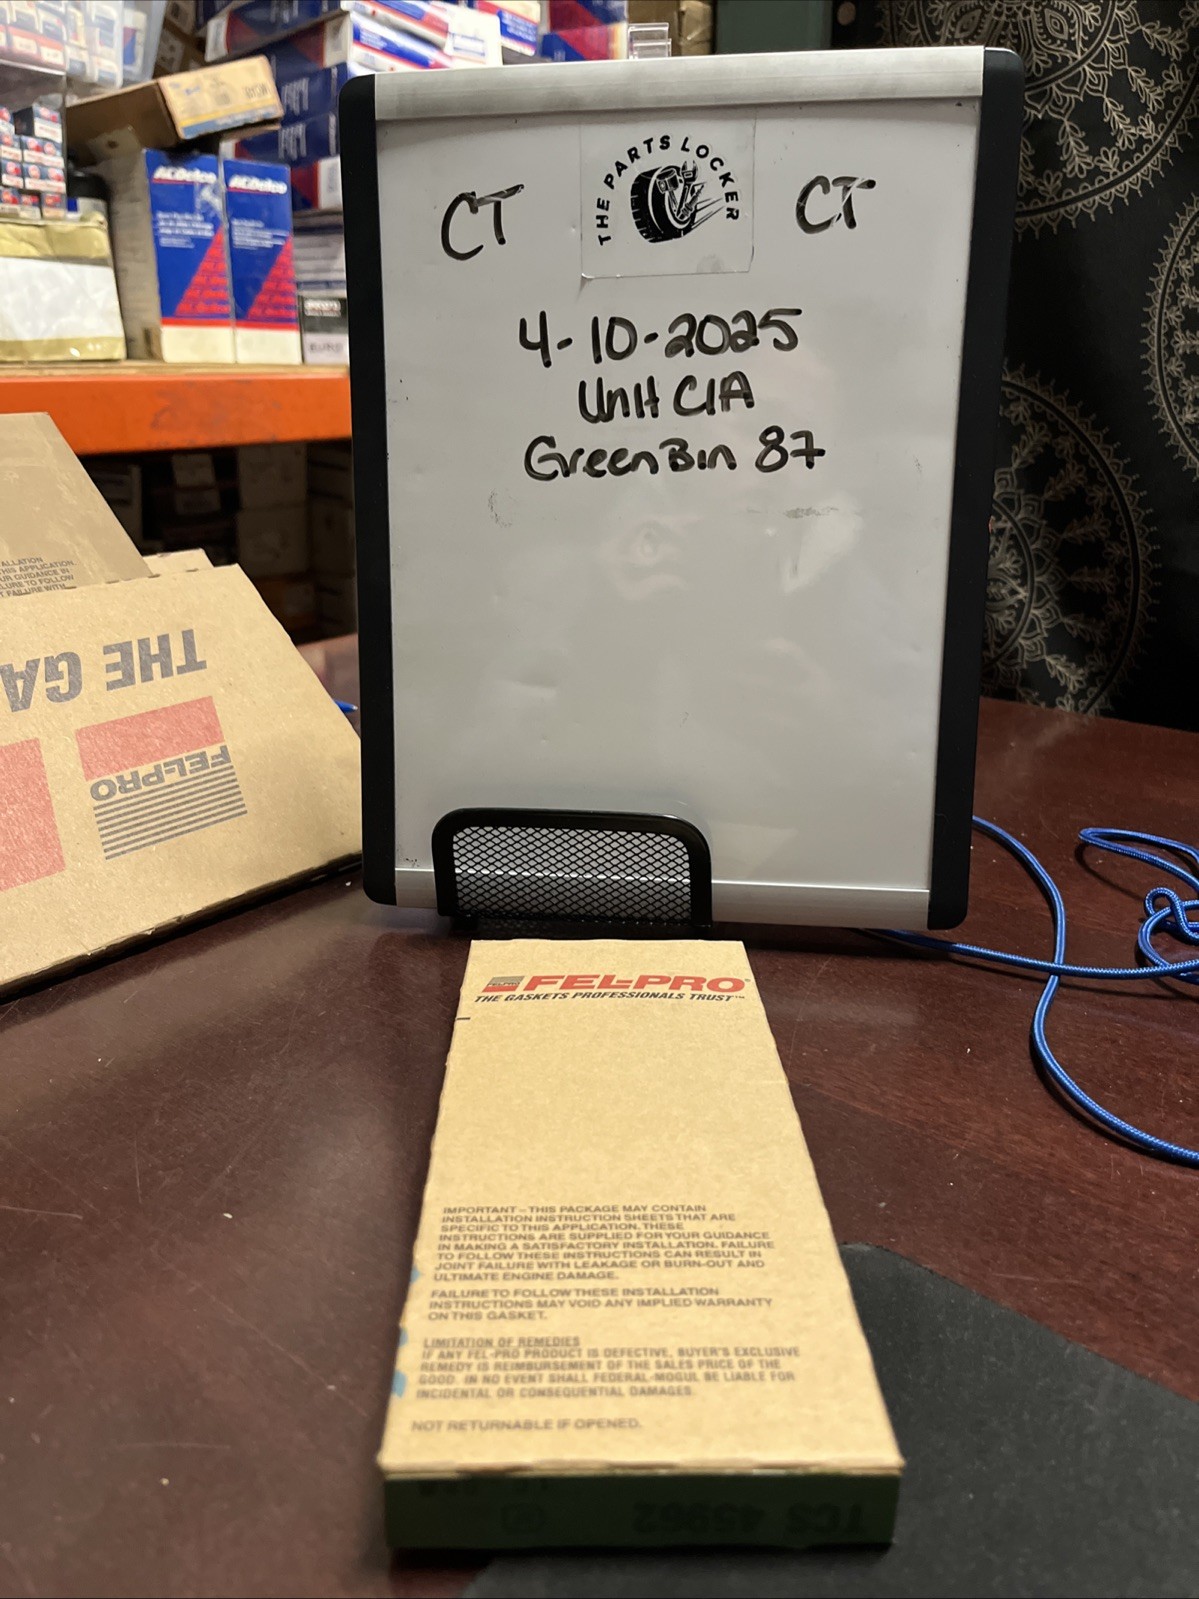 ACDelco
ACDelco
THE PARTS LOCKER
CT
CT
4-10-2025
Unit C1A
Green Bin 87
ALLATION
THIS APPLICATION.
UR GUIDANCE IN
LURE TO FOLLOW
T FAILURE WITH
THE GA
FEL-PRO
FEL-PRO
FEL-PRO®
THE GASKETS PROFESSIONALS TRUST™
IMPORTANT – THIS PACKAGE MAY CONTAIN
INSTALLATION INSTRUCTION SHEETS THAT ARE
SPECIFIC TO THIS APPLICATION. THESE
INSTRUCTIONS ARE SUPPLIED FOR YOUR GUIDANCE
IN MAKING A SATISFACTORY INSTALLATION. FAILURE
TO FOLLOW THESE INSTRUCTIONS CAN RESULT IN
JOINT FAILURE WITH LEAKAGE OR BURN-OUT AND
ULTIMATE ENGINE DAMAGE.
FAILURE TO FOLLOW THESE INSTALLATION
INSTRUCTIONS MAY VOID ANY IMPLIED WARRANTY
ON THIS GASKET.
LIMITATION OF REMEDIES
IF ANY FEL-PRO PRODUCT IS DEFECTIVE, BUYER'S EXCLUSIVE
REMEDY IS REIMBURSEMENT OF THE SALES PRICE OF THE
GOOD. IN NO EVENT SHALL FEDERAL-MOGUL BE LIABLE FOR
INCIDENTAL OR CONSEQUENTIAL DAMAGES.
NOT RETURNABLE IF OPENED.
TCS 45962